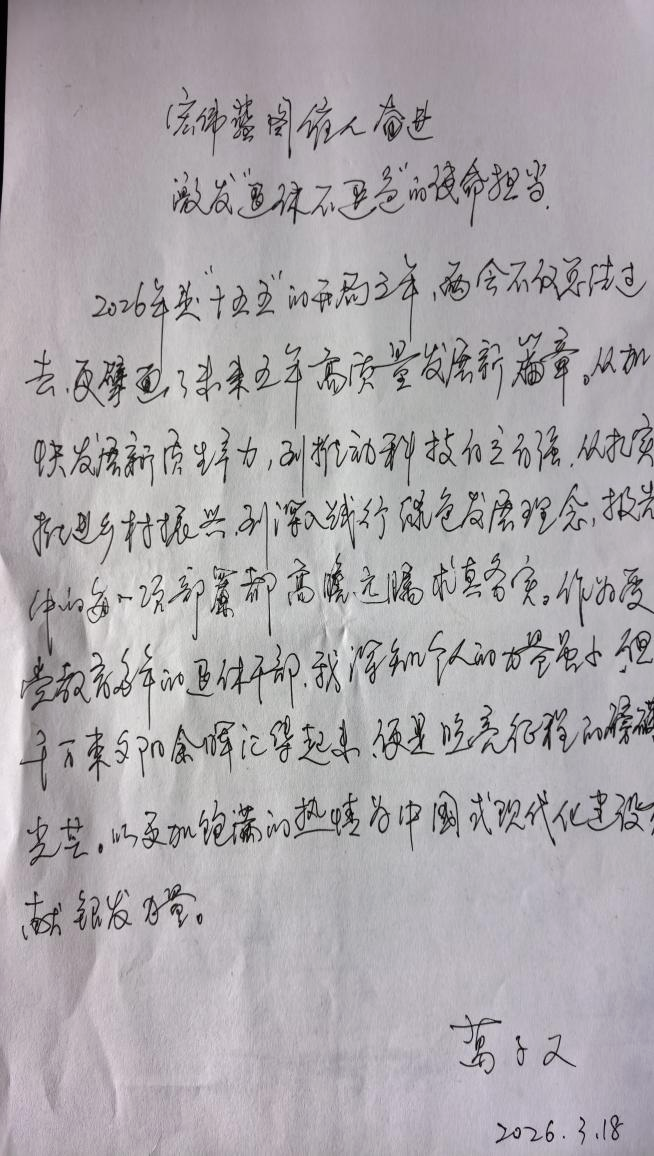 宏伟蓝图催人奋进
激发"退休不退色"的使命担当.
2026年是"十五五"的开局之年,两会不仅总结过
去,更擘画了未来五年高质量发展新篇章。从加
快发展新质生产力,到推动科技自立自强,从扎实
推进乡村振兴,到深入践行绿色发展理念,报告
中的每一项部署都高瞻远瞩求真务实。作为受
党教育多年的退休干部,我深知个人的力量虽小,但
千万束夕阳余晖汇聚起来,便是照亮征程的磅礴
光芒。以更加饱满的热情为中国式现代化建设
献银发力量。
万子又
2026.3.18